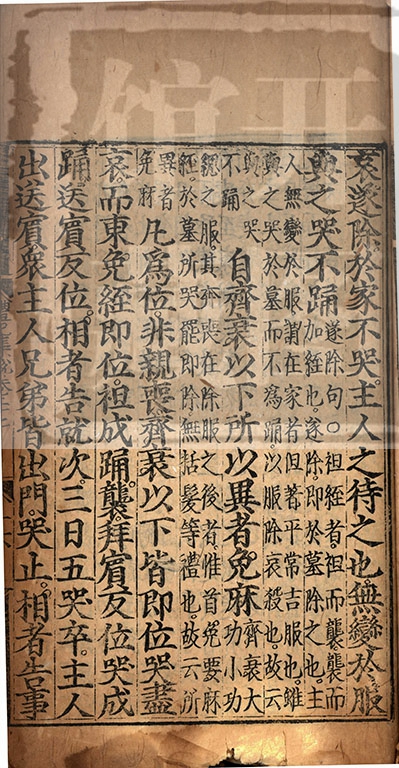 哀遂除於家不哭。主人之待之也無變於服
與之哭不踊
遂除句。袒絰者。袒而襲襲而
加絰也。遂除。即於墓除之也。主
人無變於服謂在家者但著平常吉服也。雖
與之哭於墓而不爲踊以服除哀殺也。故云
與之哭
不踊
自齊衰以下所以異者。免麻
齊衰大
功小功
緦之服。其奔喪在除服之後者。惟首免要麻
絰於墓所哭罷即除無括髮等禮也。故云所
異者
免麻
凡爲位。非親喪。齊衰以下皆即位哭盡
哀而東免絰即位。袒成踊。襲。拜賓反位哭成
踊送賓反位。相者告就次。三日五哭卒。主人
出送賓衆主人兄弟皆出門。哭止。相者告事